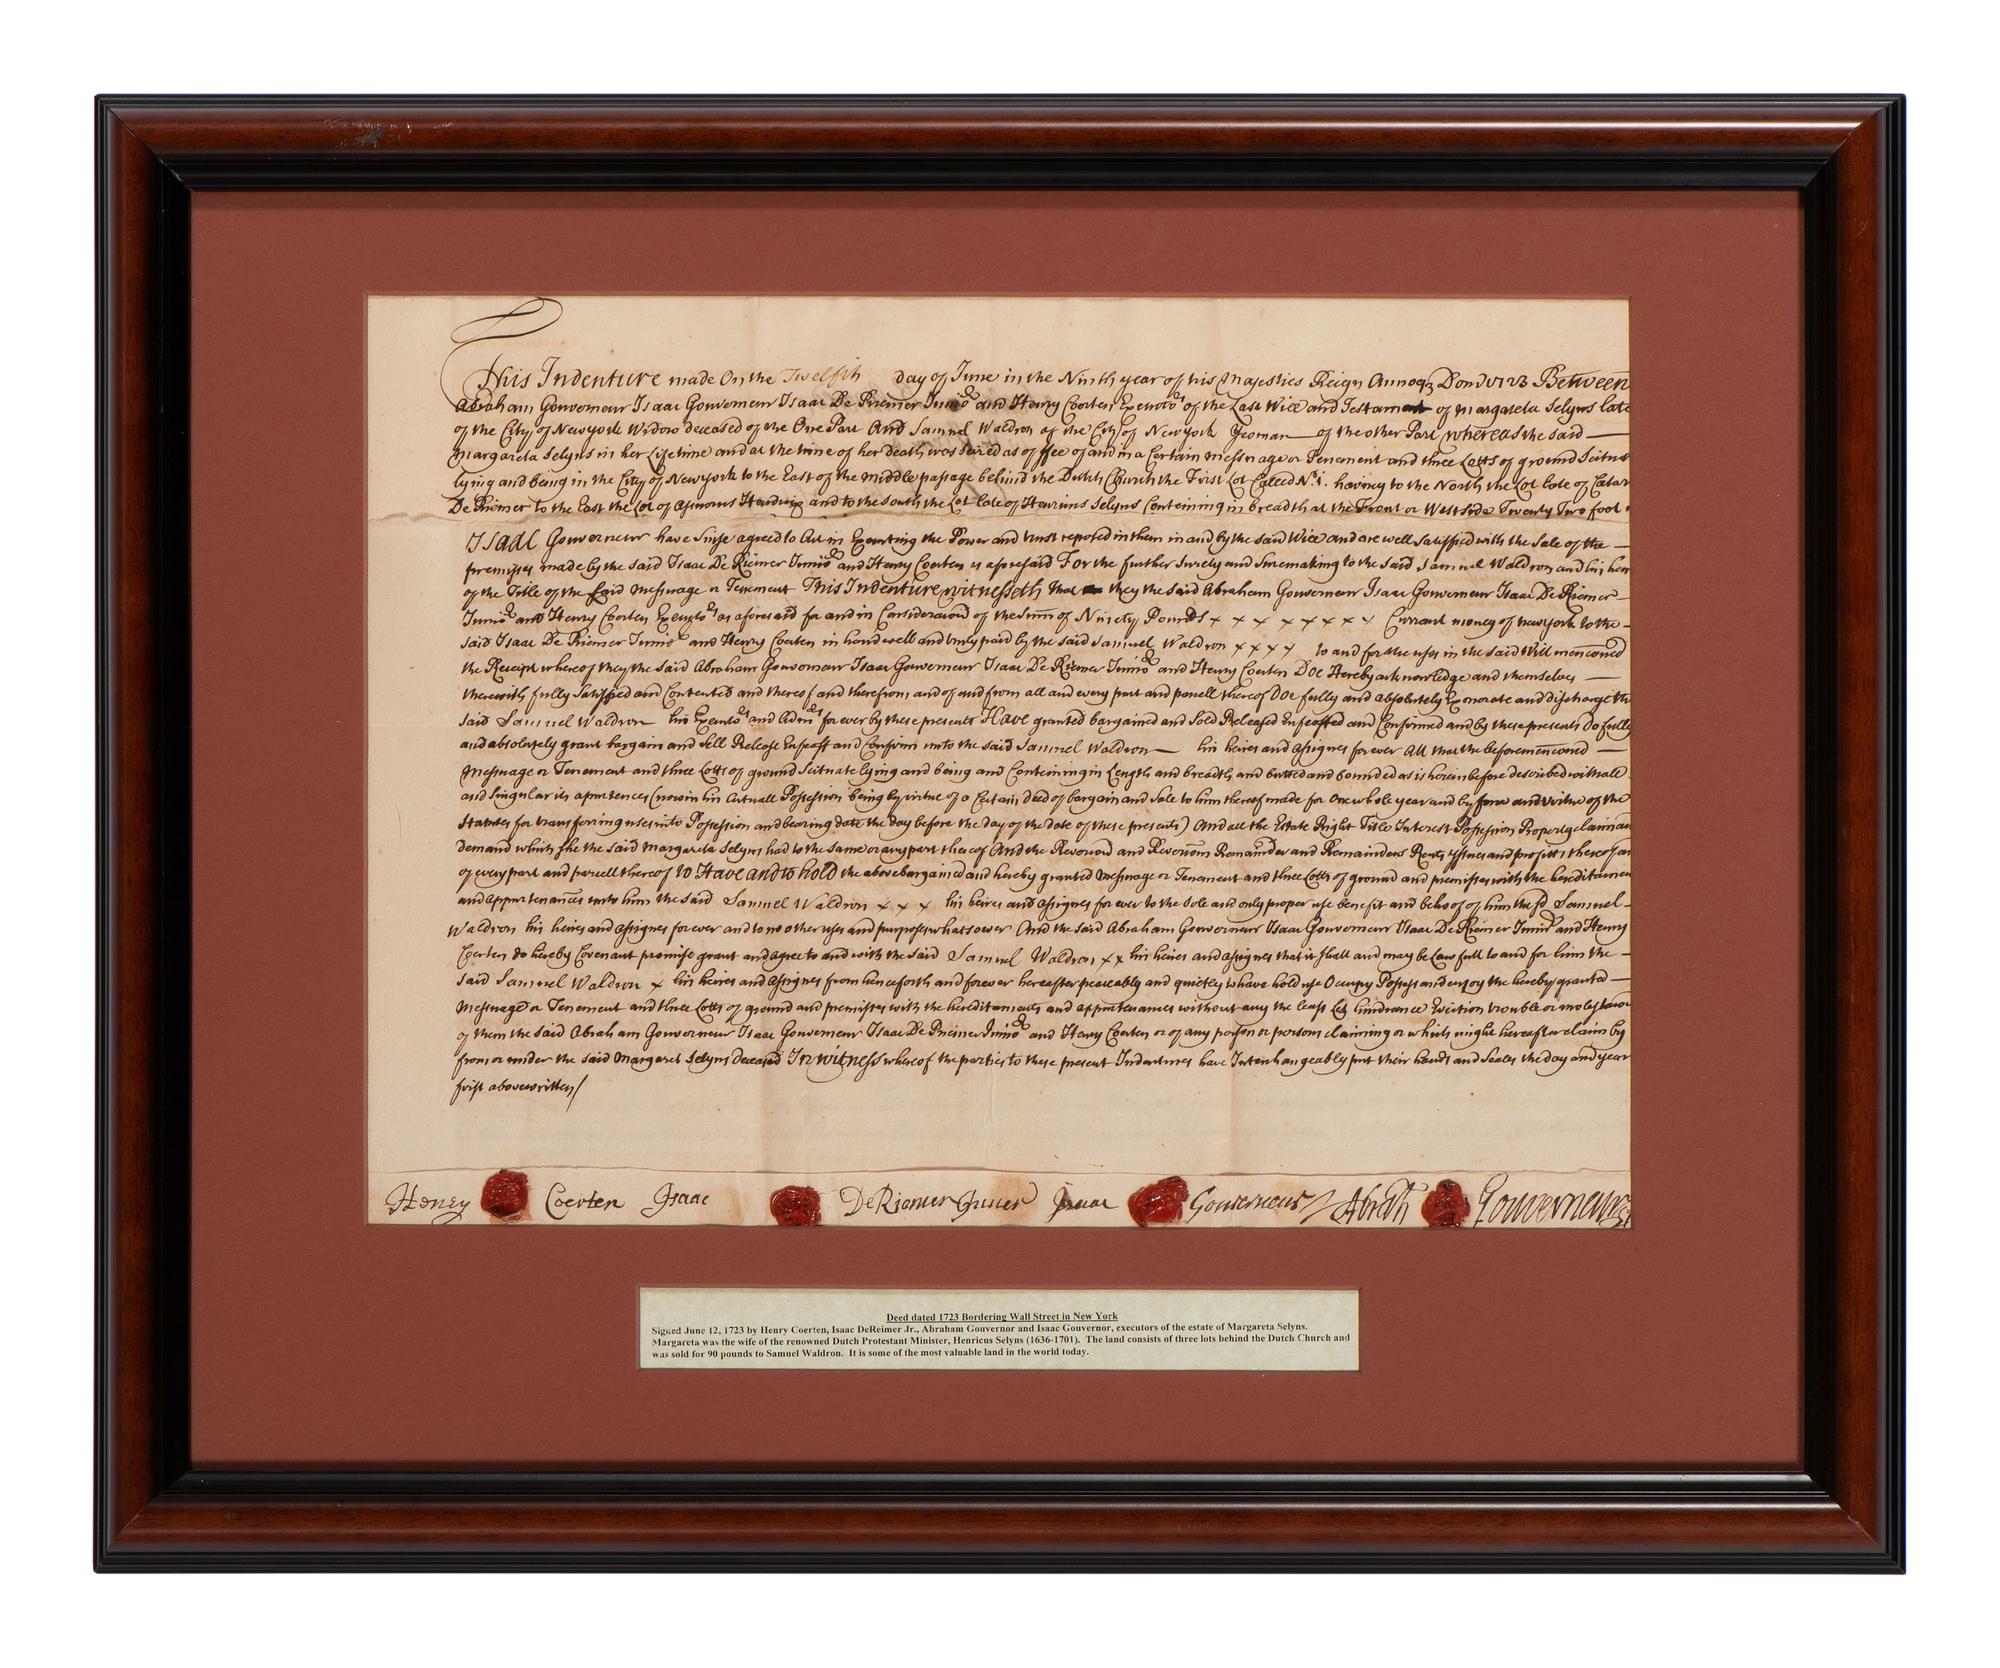 This Indenture made On the Twelfth day of June in the Ninth year of his Majesties Reign Annoq Dom 1723 Between
Abraham Gouverneur Isaac Gouverneur Isaac De Riemer Junio.r and Henry Coerten Executo.rs of the Last Will and Testament of Margareta Selyns late
of the City of New york Widow deceased of the One Part And Samuel Waldron of the City of New york Yeoman of the other Part whereas the said
Margareta Selyns in her Lifetime and at the time of her death was seized as of ffee of and in a Certain messuage or Tenement and three Lotts of ground Scituate
lying and being in the City of New york to the East of the middle passage behind the Dutch Church the First Lot Called N.o 1. having to the North the Lot late of Catar
De Riemer to the East the Lot of and to the South the Lot late of Henricus Selyns Conteining in breadth at the Front or West side Twenty Two foot
Isaac Gouverneur have Sinse agreed to Act in Executing the Power and trust reposed in them in and by the said Will and are well Satisfied with the Sale of the
premisses made by the said Isaac De Riemer Junio.r and Henry Coerten as aforesaid For the further Surety and Sure making to the Said Samuel Waldron and his heirs
of the Title of the Said Messuage or Tenement This Indenture witnesseth that they the said Abraham Gouverneur Isaac Gouverneur Isaac De Riemer
Junio.r and Henry Coerten Executo.rs as aforesaid for and in Consideration of the Summ of Ninety Pounds x x x x x x x Currant money of new york to the
said Isaac De Riemer Junio.r and Henry Coerten in hand well and truly paid by the said Samuel Waldron x x x x to and for the uses in the said Will mencioned
the Receipt whereof they the said Abraham Gouverneur Isaac Gouverneur Isaac De Riemer Junio.r and Henry Coerten Doe Hereby acknowledge and themselves
therewith fully Satisfied and Contented and thereof and therefrom and of and from all and every part and parcell thereof Doe fully and absolutely Exonerate and discharge the
said Samuel Waldron his Executo.rs and Admi.rs for ever by these presents Have granted bargained and Sold Released Enfeoffed and Confirmed and by these presents Do fully
and absolutely grant bargain and Sell Release Enfeoff and Confirm unto the said Samuel Waldron his heires and assignes for ever All that the beforemencioned
Messuage or Tenement and three Lotts of ground Scituate lying and being and Conteining in Length and breadth and butted and bounded as is herein before described with all
and Singular its apurtences (now in his Actuall Possession being by virtue of a Certain deed of bargain and Sale to him thereof made for One whole year and by force and virtue of the
Statutes for transferring uses into Possession and bearing date the day before the day of the date of these presents) And all the Estate Right Title Interest Possession Property claim and
demand which she the said Margareta Selyns had to the same or any part thereof And the Revercion and Revercions Remainder and Remainders Rents Issues and profitts thereof and
of every part and parcell thereof To Have and to hold the above bargained and hereby granted Messuage or Tenement and three Lotts of ground and premisses with the hereditamen
and appurtenances unto him the said Samuel Waldron x x x his heires and assignes for ever to the Sole and only proper use benefit and behoof of him the sd Samuel
Waldron his heires and assignes for ever and to no other uses and purposes whatsoever And the said Abraham Gouverneur Isaac Gouverneur Isaac De Riemer Junio.r and Henry
Coerten do hereby Covenant promise grant and agree to and with the Said Samuel Waldron x x his heires and assignes that it shall and may be Lawfull to and for him the
said Samuel Waldron x his heires and assignes from henceforth and forever hereafter peaceably and quietly to have hold use Occupy Possess and enjoy the hereby granted
Messuage or Tenement and three Lotts of ground and premisses with the hereditaments and appurtenances without any the least Let hindrance Eviction trouble or molestacion
of them the said Abraham Gouverneur Isaac Gouverneur Isaac De Riemer Junio.r and Henry Coerten or of any person or persons claiming or which might hereafter claim by
from or under the said Margaret Selyns Deceased In witness whereof the parties to these present Indentures have Interchangeably put their hands and Seales the day and year
first above written/
Henry Coerten Isaac De Riemer Junier Isaac Gouverneur Abrah Gouverneur
Deed dated 1723 Bordering Wall Street in New York
Signed June 12, 1723 by Henry Coerten, Isaac DeReimer Jr., Abraham Gouvernor and Isaac Gouvernor, executors of the estate of Margareta Selyns.
Margareta was the wife of the renowned Dutch Protestant Minister, Henricus Selyns (1636-1701). The land consists of three lots behind the Dutch Church and
was sold for 90 pounds to Samuel Waldron. It is some of the most valuable land in the world today.